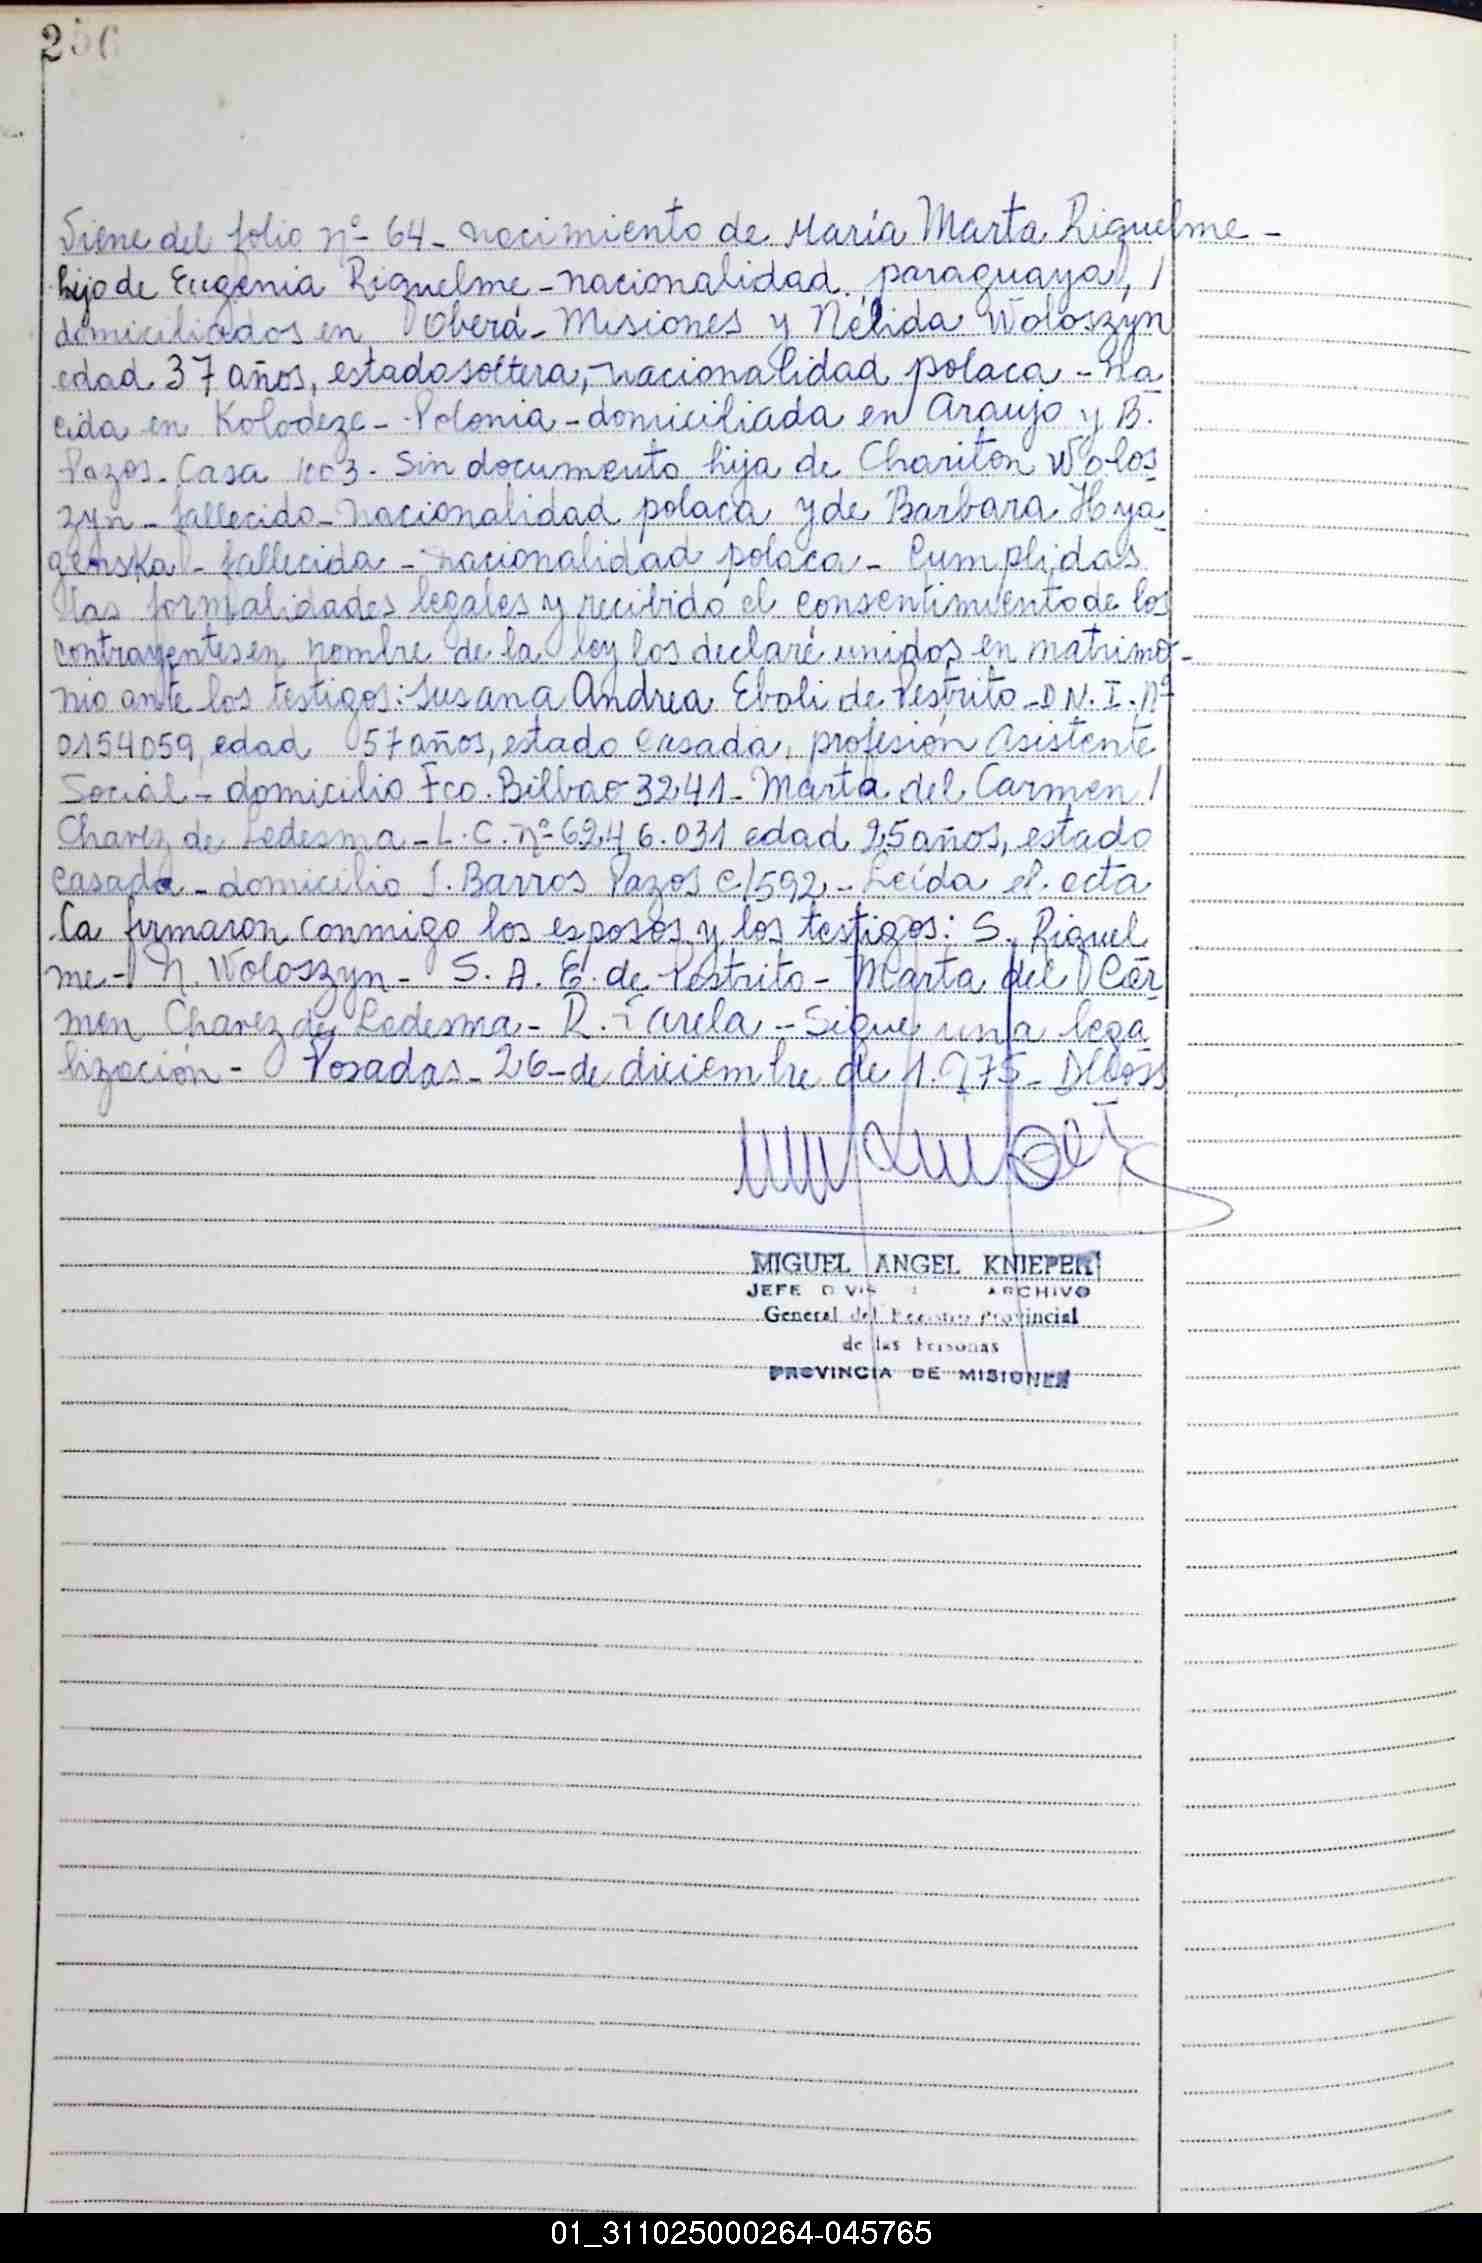 256
Viene del folio nº 64 - nacimiento de María Marta Riquelme -
hijo de Eugenia Riquelme - nacionalidad paraguaya, /
domiciliados en Oberá - Misiones y Nélida Woloszyn
edad 37 años, estado soltera, - nacionalidad polaca - na
cida en Kolodeze - Polonia - domiciliada en Araujo y B.
Pazos - Casa 103 - Sin documento hija de Chariton Wolos
zyn - fallecido - nacionalidad polaca y de Barbara Hya
genska - fallecida - nacionalidad polaca - Cumplidas
las formalidades legales y recibido el consentimiento de los
contrayentes en nombre de la ley los declaré unidos en matrimo -
nio ante los testigos: Susana Andrea Eboli de Pestrito - D.N.I. Nº
0154059, edad 57 años, estado casada, profesión Asistente
Social - domicilio Fco. Bilbao 3241 - Marta del Carmen /
Charez de Ledesma - L.C. nº 6246.031 edad 25 años, estado
casada - domicilio J. Barros Pazos c/592 - Leída el acta
la firmaron conmigo los esposos y los testigos: S. Riquel
me - N. Woloszyn - S. A. E. de Pestrito - Marta del Car
men Charez de Ledesma - R. Varela - Sigue una lega
lización - Posadas - 26 - de diciembre de 1.975 -
MIGUEL ANGEL KNIEPER
JEFE DIVIS ARCHIVO
General del Registro Provincial
de las Personas
PROVINCIA DE MISIONES
01_311025000264-045765